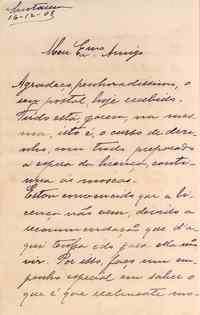 16-12-03
Meu Exmo. Amigo
Agradeço, penhoradissimo, o
seu postal, hoje recebido.
Tudo está, porem, na mes
ma, isto é, o curso de dese
nho, com tudo preparado
a espera da licença, conti
nua ás moscas.
Estou convencido que a li
cença não vem, devido a
recommendação que d'a
qui Corpo oda para ella não
vir. Por isso, faço um em
penho especial em saber o
que é que realmente mo